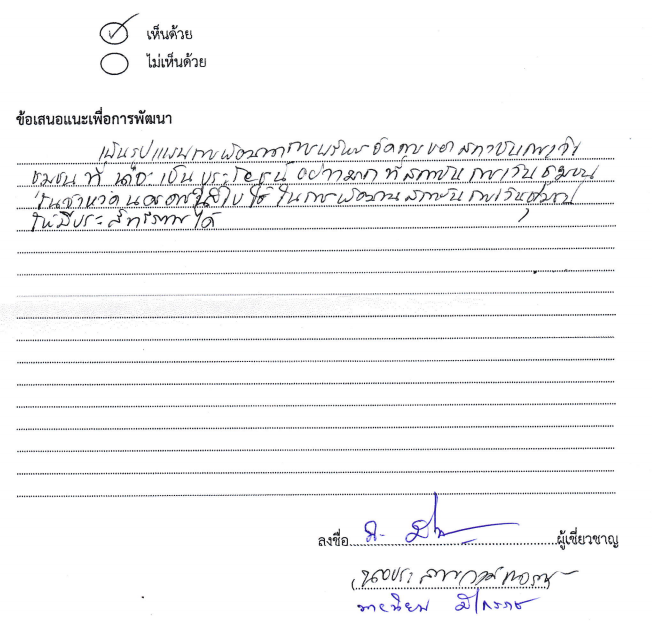 เห็นด้วย
ไม่เห็นด้วย
ข้อเสนอแนะเพื่อการพัฒนา
เป็นรูปแบบการพัฒนาการบริหารจัดการของสถาบันการเงิน
ชุมชน ที่ เป็นประโยชน์ อย่างมาก ที่สถาบันการเงินชุมชน
ในจังหวัด ไปใช้ ในการพัฒนาสถาบันการเงินชุมชน
ให้มีประสิทธิภาพได้
ลงชื่อ ผู้เชี่ยวชาญ